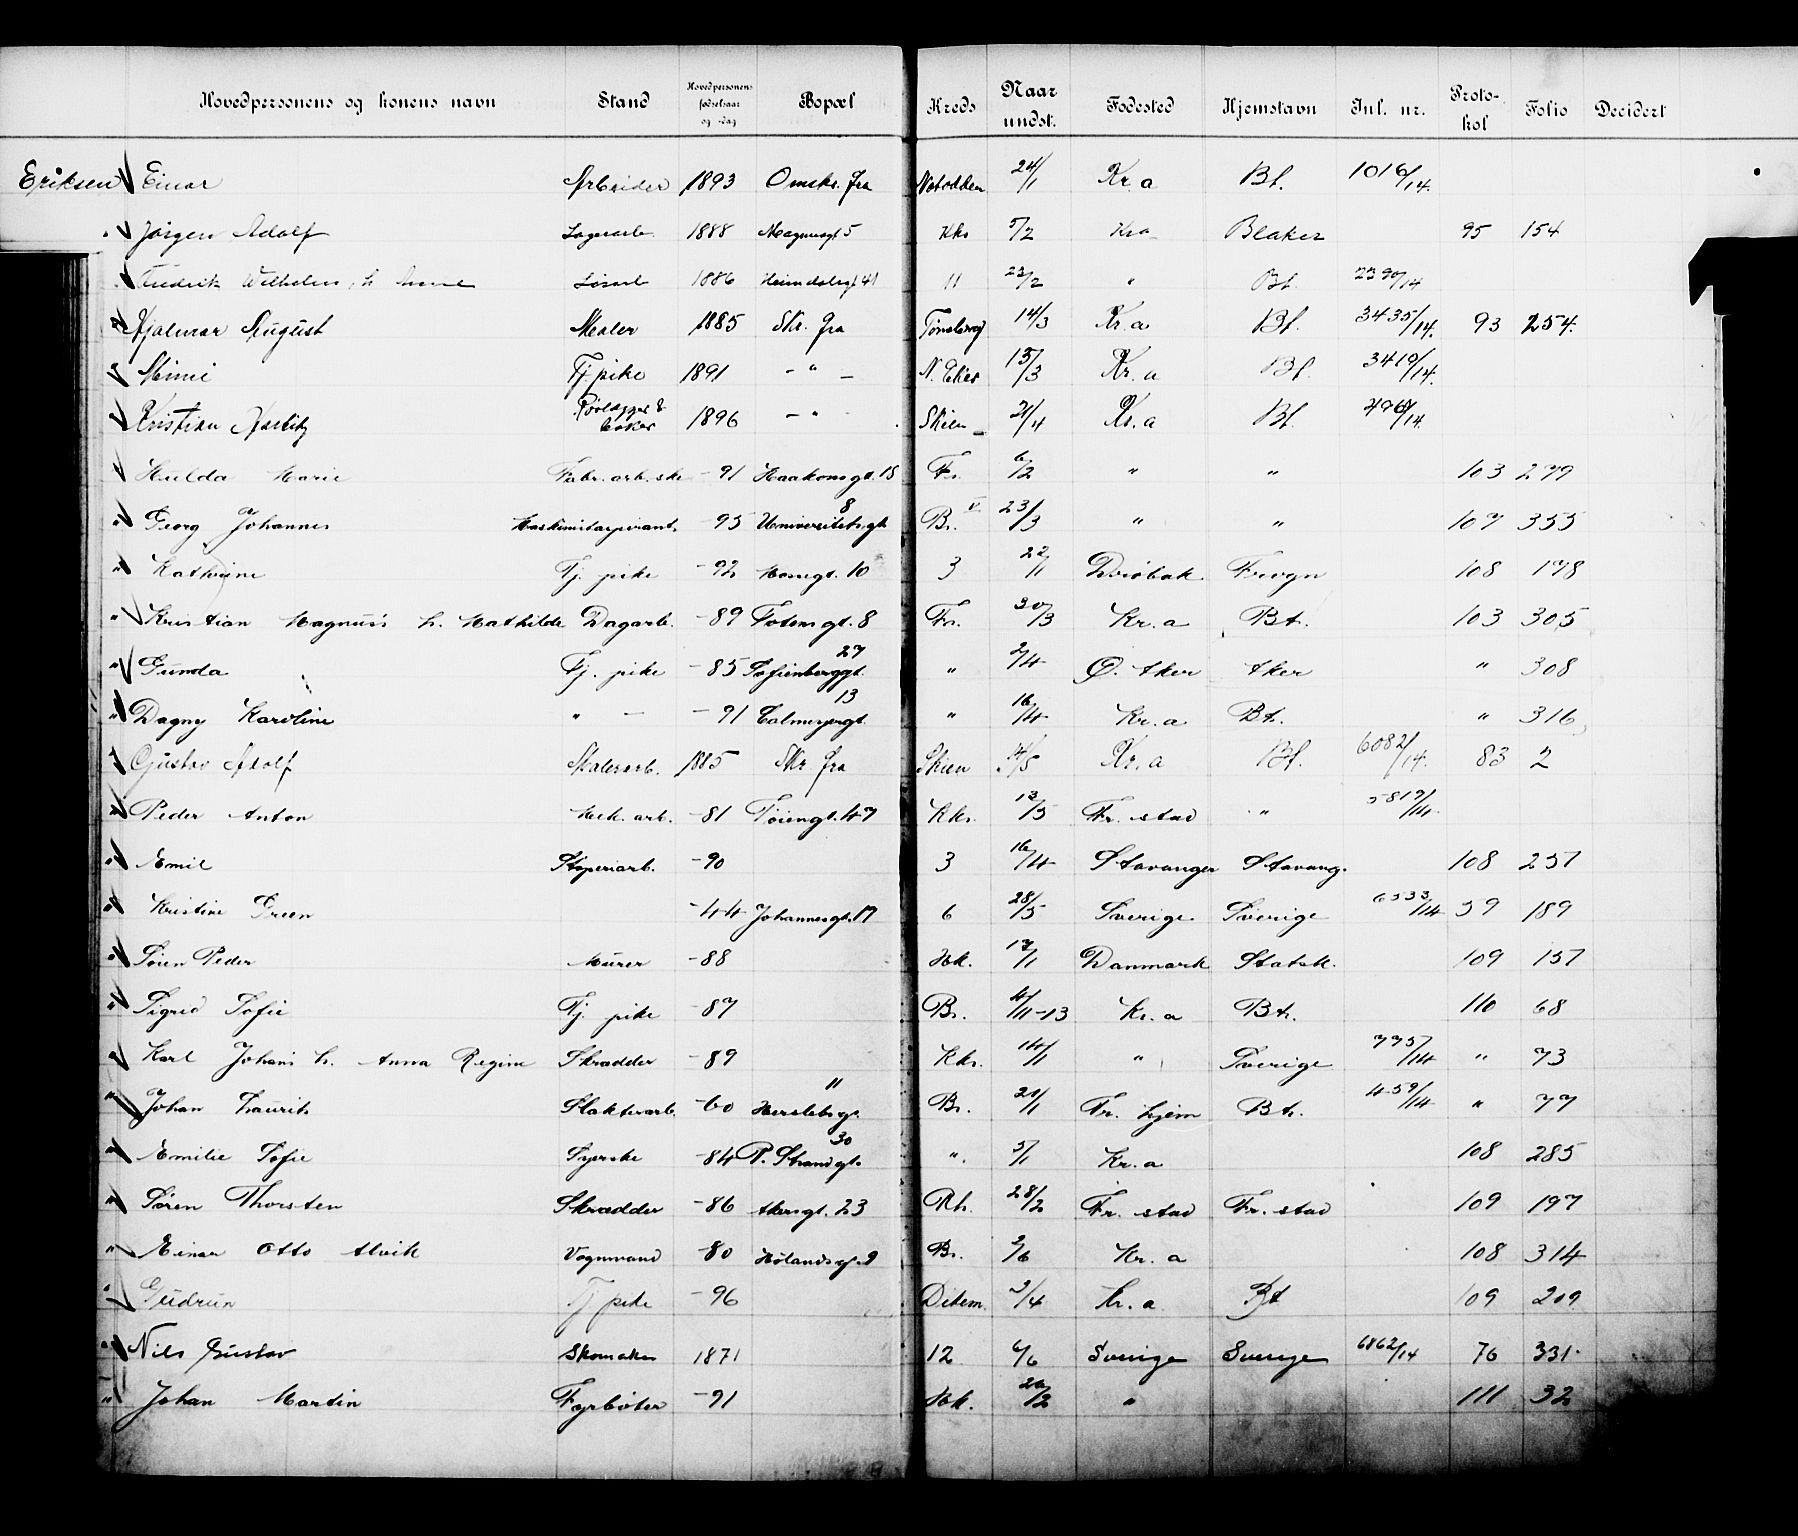 Hovedpersonens og konens navn Stand Hovedpersonens fødselsaar og -dag Bopæl Kreds Naar undst. Fødested Hjemstavn Jnl. nr. Proto-kol Folio Decidert
Eriksen Einar Arbeider 1893 Omskr. fra Notodden 24/1 Kr.a Bt. 1016/14.
" Jørgen Adolf Lagerarb. 1888 Magnusgt 5 Kks 5/2 Kra Blaker 95 154
" Fredrik Wilhelm, h. Løsarb 1886 Heimdalsgt 41 11 23/2 " Bt. 2390/14
" Hjalmar August Maler 1885 Skr. fra Tønsberg 14/3 Kr.a Bt. 3435/14. 93 254.
" Mimi Tj.pike 1891 - " - N. Eker 13/3 Kr.a Bt. 3419/14.
" Kristian Rørlægger & 1896 - " Skien 21/4 Kr.a Bt.
" Hulda Marie Fabr.arb.ske -91 Haakonsgt. 15 Fr. 6/2 " " 103 279
" Georg Johannes Maskinistaspirant -95 Universitetsgt. 8 Br. V 23/3 " " 107 355
" Kathrine Tj. pike -92 Mosegt. 10 3 22/1 Drøbak Frogn 108 178
" Kristian Magnus h. Mathilde Dagarb. -89 Totensgt. 8 Fr. 30/3 Kr.a Bt. 103 305
" Gunda Tj. pike -85 Sofienberggt. 27 " 2/4 Ø. Aker Aker " 308
" Dagny Karoline " - -91 Calmeyergt. 13 " 16/4 Kr.a Bt. " 316
" Gustav Adolf Malerarb. 1885 Skr fra Skien 14/5 Kr.a Bt. 6082/14. 83 2
" Peder Anton Mek. arb. -81 Tøiengt. 47 Kks. 13/5 Fr. stad " 5819/14.
" Emil Støperiarb. -90 3 16/4 Stavanger Stavang. 108 257
" Kristine Green -44 Johannesgt. 17 6 28/5 Sverige Sverige 6533/14 59 189
" Søren Peder Murer -88 Hk. 17/1 Danmark Statsk. 109 157
" Sigrid Sofie Tj. pike -87 Br. 4/11-13 Kr.a Bt. 110 68
" Karl Johans h. Anna Regine Skrædder -89 Kks. 14/1 " Sverige 775/14 " 73
" Johan Laurits Slakterarb. -60 Herslebsgt. 11 Br. 21/1 Fr. hjem Bt. 459/14 " 77
" Emilie Sofie Syerske -84 P. Strandgt. 30 ". 5/1 Kr.a 108 285
" Søren Thorsten Skrædder -86 Akersgt. 23 Rh. 28/2 Fr. stad Fr. stad 109 197
" Einar Otto Alvik Vognmand -80 Hølandsgt. 2 Br. 2/6 Kr.a 108 314
" Gudrun Tj pike -96 Ditem. 3/4 Kr.a Bt 109 209
" Nils Gustav Skomaker 1871 12 6/6 Sverige Sverige 6862/14 76 331.
" Johan Martin Fyrbøter -91 Hk. 20/2 " 111 32